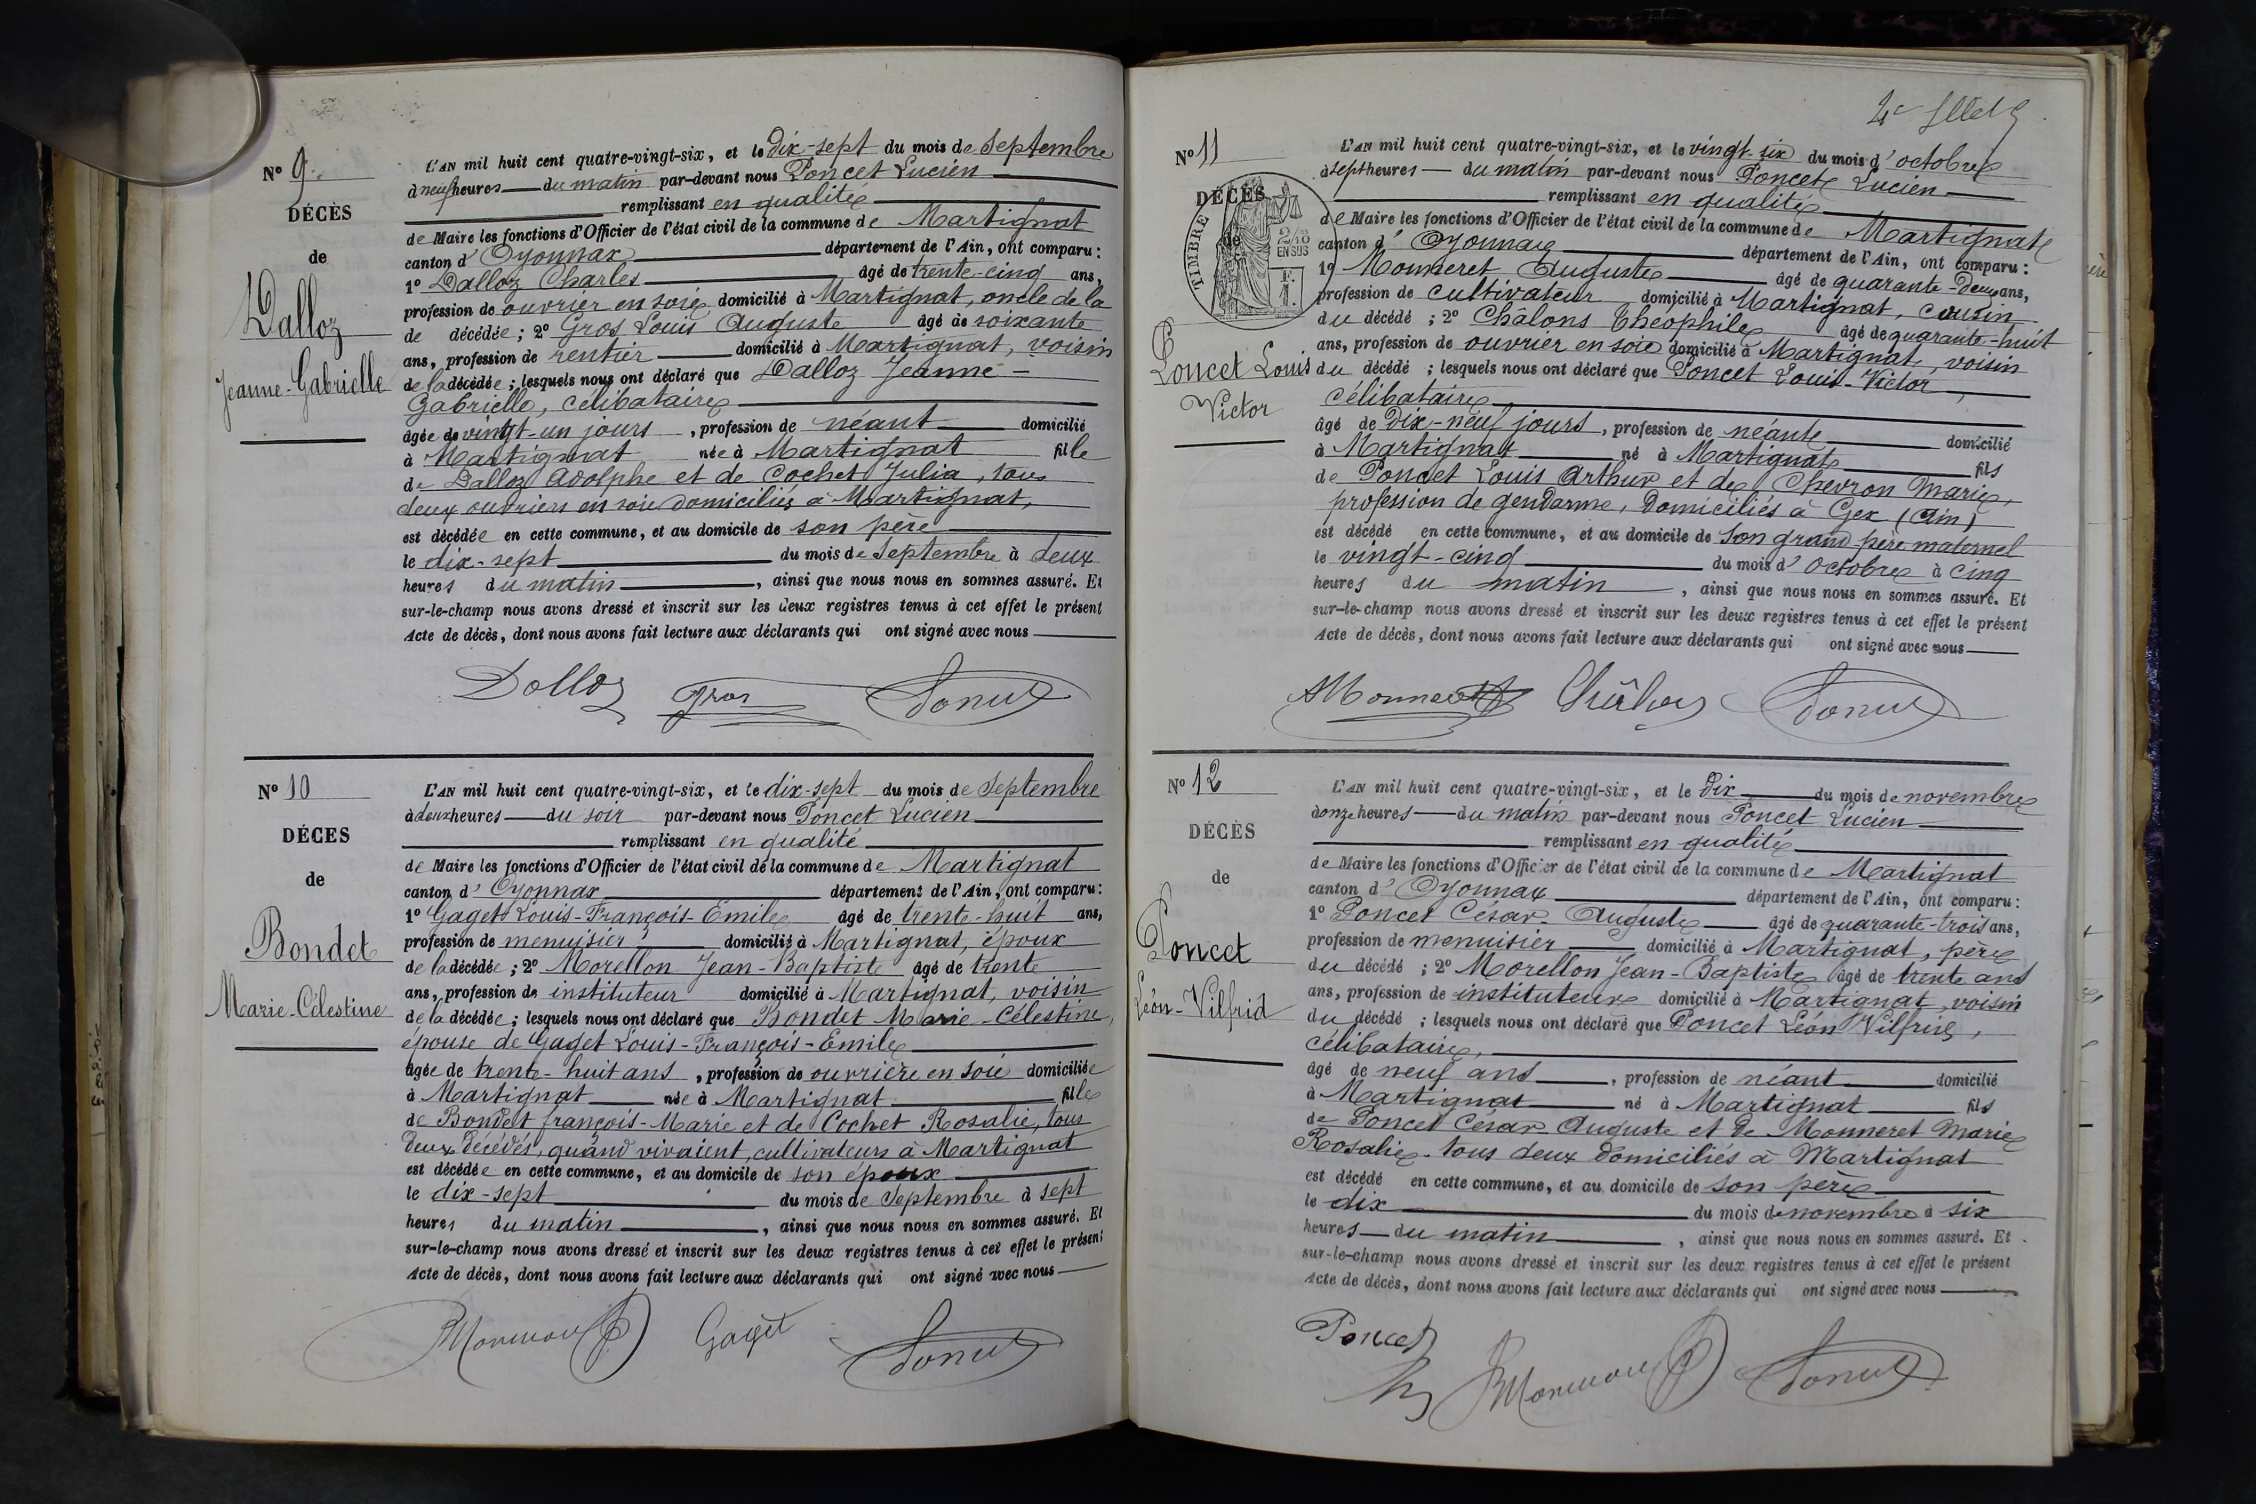 N° 9.
DÉCÈS
de
Dalloz
Jeanne-Gabrielle
L'AN mil huit cent quatre-vingt-six, et le dix-sept du mois de Septembre
à neuf heures du matin par-devant nous Poncet Lucien
remplissant en qualité
de Maire les fonctions d'Officier de l'état civil de la commune de Martignat
canton d'Oyonnax département de l'Ain, ont comparu :
1° Dalloz Charles âgé de trente-cinq ans,
profession de ouvrier en soie domicilié à Martignat, oncle de la
de décédée ; 2° Gros Louis Auguste âgé de soixante
ans, profession de rentier domicilié à Martignat, voisin
de la décédée ; lesquels nous ont déclaré que Dalloz Jeanne-
Gabrielle, célibataire
âgée de vingt-un jours, profession de néant domicilié
à Martignat née à Martignat fille
de Dalloz Adolphe et de Cochet Julia, tous
deux ouvriers en soie domiciliés à Martignat,
est décédée en cette commune, et au domicile de son père
le dix-sept du mois de Septembre à deux
heures du matin, ainsi que nous nous en sommes assuré. Et
sur-le-champ nous avons dressé et inscrit sur les deux registres tenus à cet effet le présent
Acte de décès, dont nous avons fait lecture aux déclarants qui ont signé avec nous
Dalloz Gros Poncet
N° 10
DÉCES
de
Bondet
Marie-Célestine
L'AN mil huit cent quatre-vingt-six, et le dix-sept du mois de Septembre
à deux heures du soir par-devant nous Poncet Lucien
remplissant en qualité
de Maire les fonctions d'Officier de l'état civil de la commune de Martignat
canton d'Oyonnax département de l'Ain, ont comparu :
1° Gaget Louis-François-Emile âgé de trente-huit ans,
profession de menuisier domicilié à Martignat, époux
de la décédée ; 2° Morellon Jean-Baptiste âgé de trente
ans, profession de instituteur domicilié à Martignat, voisin
de la décédée ; lesquels nous ont déclaré que Bondet Marie-Célestine,
épouse de Gaget Louis-François-Emile
âgée de trente-huit ans, profession de ouvrière en soie domiciliée
à Martignat née à Martignat fille
de Bondet françois-Marie et de Cochet Rosalie, tous
deux décédés, quand vivaient, cultivateurs à Martignat
est décédée en cette commune, et au domicile de son époux
le dix-sept du mois de Septembre à sept
heures du matin, ainsi que nous nous en sommes assuré. Et
sur-le-champ nous avons dressé et inscrit sur les deux registres tenus à cet effet le présent
Acte de décès, dont nous avons fait lecture aux déclarants qui ont signé avec nous
Gaget Poncet
N° 11
DÉCÈS
de
TIMBRE
2/10
EN SUS
Poncet Louis
Victor
L'AN mil huit cent quatre-vingt-six, et le vingt-six du mois d'octobre
à sept heures du matin par-devant nous Poncet Lucien
remplissant en qualité
de Maire les fonctions d'Officier de l'état civil de la commune de Martignat
canton d'Oyonnax département de l'Ain, ont comparu :
1° Monneret Auguste âgé de quarante-deux ans,
profession de cultivateur domicilié à Martignat, cousin
du décédé ; 2° Châlons Théophile âgé de quarante-huit
ans, profession de ouvrier en soie domicilié à Martignat, voisin
du décédé ; lesquels nous ont déclaré que Poncet Louis-Victor,
célibataire,
âgé de Dix-neuf jours, profession de néante domicilié
à Martignat né à Martignat fils
de Poncet Louis Arthur et de Chevron Marie,
profession de gendarme, domiciliés à Gex (Ain)
est décédé en cette commune, et au domicile de son grand-père maternel
le vingt-cinq du mois d'octobre à cinq
heures du matin, ainsi que nous nous en sommes assuré. Et
sur-le-champ nous avons dressé et inscrit sur les deux registres tenus à cet effet le présent
Acte de décès, dont nous avons fait lecture aux déclarants qui ont signé avec nous
AMonneret Poncet
N° 12
DÉCÈS
de
Poncet
Léon-Vilfrid
L'AN mil huit cent quatre-vingt-six, et le Dix du mois de novembre
à onze heures du matin par-devant nous Poncet Lucien
remplissant en qualité
de Maire les fonctions d'Officier de l'état civil de la commune de Martignat
canton d'Oyonnax département de l'Ain, ont comparu :
1° Poncet César-Auguste âgé de quarante-trois ans,
profession de menuisier domicilié à Martignat, père
du décédé ; 2° Morellon Jean-Baptiste âgé de trente ans
ans, profession de instituteur domicilié à Martignat, voisin
du décédé ; lesquels nous ont déclaré que Poncet Léon Vilfrid,
célibataire,
âgé de neuf ans, profession de néant domicilié
à Martignat né à Martignat fils
de Poncet César-Auguste et de Monneret Marie
Rosalie tous deux domiciliés à Martignat
est décédé en cette commune, et au domicile de son père
le dix du mois de novembre à six
heures du matin, ainsi que nous nous en sommes assuré. Et
sur-le-champ nous avons dressé et inscrit sur les deux registres tenus à cet effet le présent
Acte de décès, dont nous avons fait lecture aux déclarants qui ont signé avec nous
Poncet
Poncet